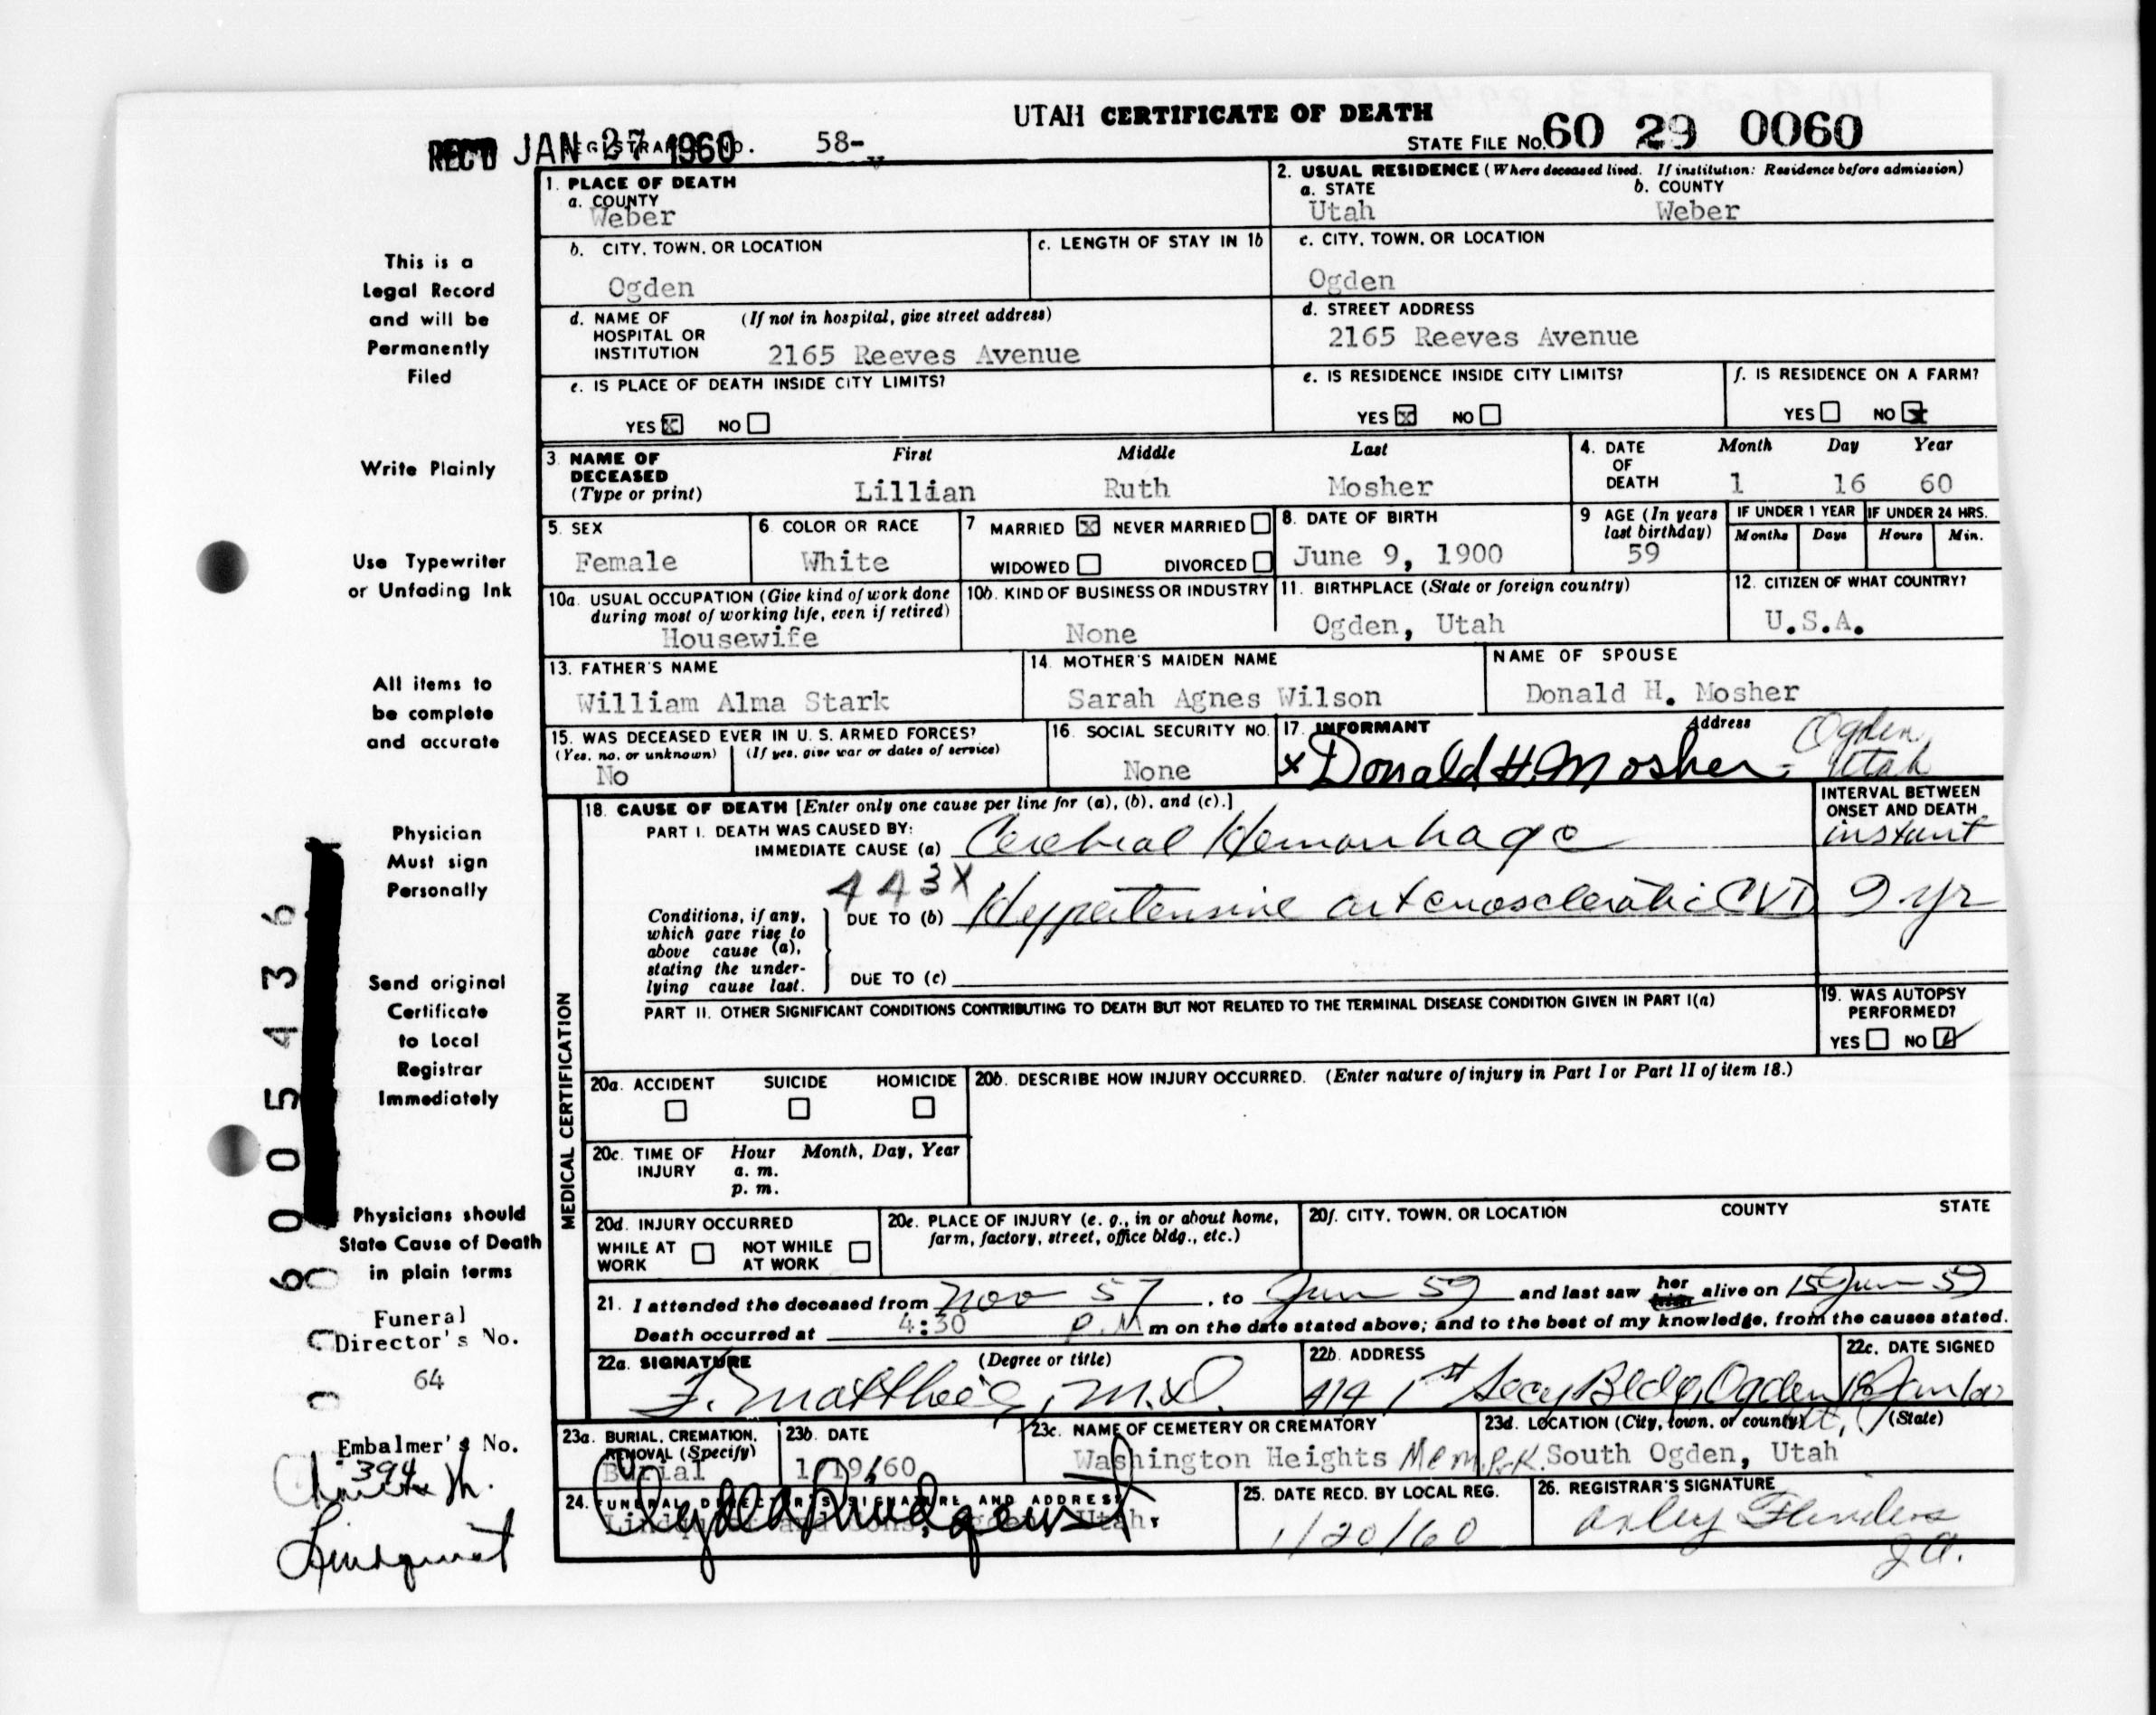 UTAH CERTIFICATE OF DEATH
REC'D JAN 27 1960 REGISTRAR'S NO. 58-
STATE FILE NO. 60 29 0060
1. PLACE OF DEATH
a. COUNTY
Weber
2. USUAL RESIDENCE (Where deceased lived. If institution: Residence before admission)
a. STATE b. COUNTY
Utah Weber
b. CITY, TOWN, OR LOCATION
Ogden
c. LENGTH OF STAY IN 1b
c. CITY, TOWN, OR LOCATION
Ogden
d. NAME OF (If not in hospital, give street address)
HOSPITAL OR
INSTITUTION 2165 Reeves Avenue
d. STREET ADDRESS
2165 Reeves Avenue
e. IS PLACE OF DEATH INSIDE CITY LIMITS?
YES X NO
e. IS RESIDENCE INSIDE CITY LIMITS?
YES X NO
f. IS RESIDENCE ON A FARM?
YES NO X
3. NAME OF DECEASED (Type or print)
First Middle Last
Lillian Ruth Mosher
4. DATE OF DEATH Month Day Year
1 16 60
5. SEX
Female
6. COLOR OR RACE
White
7 MARRIED X NEVER MARRIED
WIDOWED DIVORCED
8. DATE OF BIRTH
June 9, 1900
9 AGE (In years last birthday)
59
IF UNDER 1 YEAR IF UNDER 24 HRS.
Months Days Hours Min.
10a. USUAL OCCUPATION (Give kind of work done
during most of working life, even if retired)
Housewife
10b. KIND OF BUSINESS OR INDUSTRY
None
11. BIRTHPLACE (State or foreign country)
Ogden, Utah
12. CITIZEN OF WHAT COUNTRY?
U.S.A.
13. FATHER'S NAME
William Alma Stark
14. MOTHER'S MAIDEN NAME
Sarah Agnes Wilson
NAME OF SPOUSE
Donald H. Mosher
15. WAS DECEASED EVER IN U. S. ARMED FORCES?
(Yes, no, or unknown) (If yes, give war or dates of service)
No
16. SOCIAL SECURITY NO.
None
17. INFORMANT Address
x Donald H. Mosher - Ogden Utah
MEDICAL CERTIFICATION
18. CAUSE OF DEATH [Enter only one cause per line for (a), (b), and (c).]
INTERVAL BETWEEN ONSET AND DEATH
PART I. DEATH WAS CAUSED BY:
IMMEDIATE CAUSE (a) Cerebral Hemorrhage instant
443X
Conditions, if any,
which gave rise to
above cause (a),
stating the under-
lying cause last.
DUE TO (b) Hypertensive arteriosclerotic CVD 2 yr
DUE TO (c)
PART II. OTHER SIGNIFICANT CONDITIONS CONTRIBUTING TO DEATH BUT NOT RELATED TO THE TERMINAL DISEASE CONDITION GIVEN IN PART I(a)
19. WAS AUTOPSY PERFORMED?
YES NO
20a. ACCIDENT SUICIDE HOMICIDE
20b. DESCRIBE HOW INJURY OCCURRED. (Enter nature of injury in Part I or Part II of item 18.)
20c. TIME OF INJURY Hour Month, Day, Year
a. m.
p. m.
20d. INJURY OCCURRED
WHILE AT WORK NOT WHILE AT WORK
20e. PLACE OF INJURY (e. g., in or about home,
farm, factory, street, office bldg., etc.)
20f. CITY, TOWN, OR LOCATION COUNTY STATE
21. I attended the deceased from Nov 57, to Jun 59 and last saw her him alive on 15 Jun 59
Death occurred at 4:30 P.M m on the date stated above; and to the best of my knowledge, from the causes stated.
22a. SIGNATURE (Degree or title)
F. Matthei, M.D.
22b. ADDRESS
414 1st Secy Bldg, Ogden Ut,
22c. DATE SIGNED
18 Jan 60
23a. BURIAL, CREMATION,
REMOVAL (Specify)
Burial
23b. DATE
1/19/60
23c. NAME OF CEMETERY OR CREMATORY
Washington Heights Mem. Prk.
23d. LOCATION (City, town, or county) (State)
South Ogden, Utah
24. FUNERAL DIRECTOR'S SIGNATURE AND ADDRESS
Lindquist and Sons, Ogden, Utah.
25. DATE RECD. BY LOCAL REG.
1/20/60
26. REGISTRAR'S SIGNATURE
This is a
Legal Record
and will be
Permanently
Filed
Write Plainly
Use Typewriter
or Unfading Ink
All items to
be complete
and accurate
Physician
Must sign
Personally
Send original
Certificate
to Local
Registrar
Immediately
Physicians should
State Cause of Death
in plain terms
Funeral
Director's No.
64
Embalmer's No.
394
Lindquist
6005436